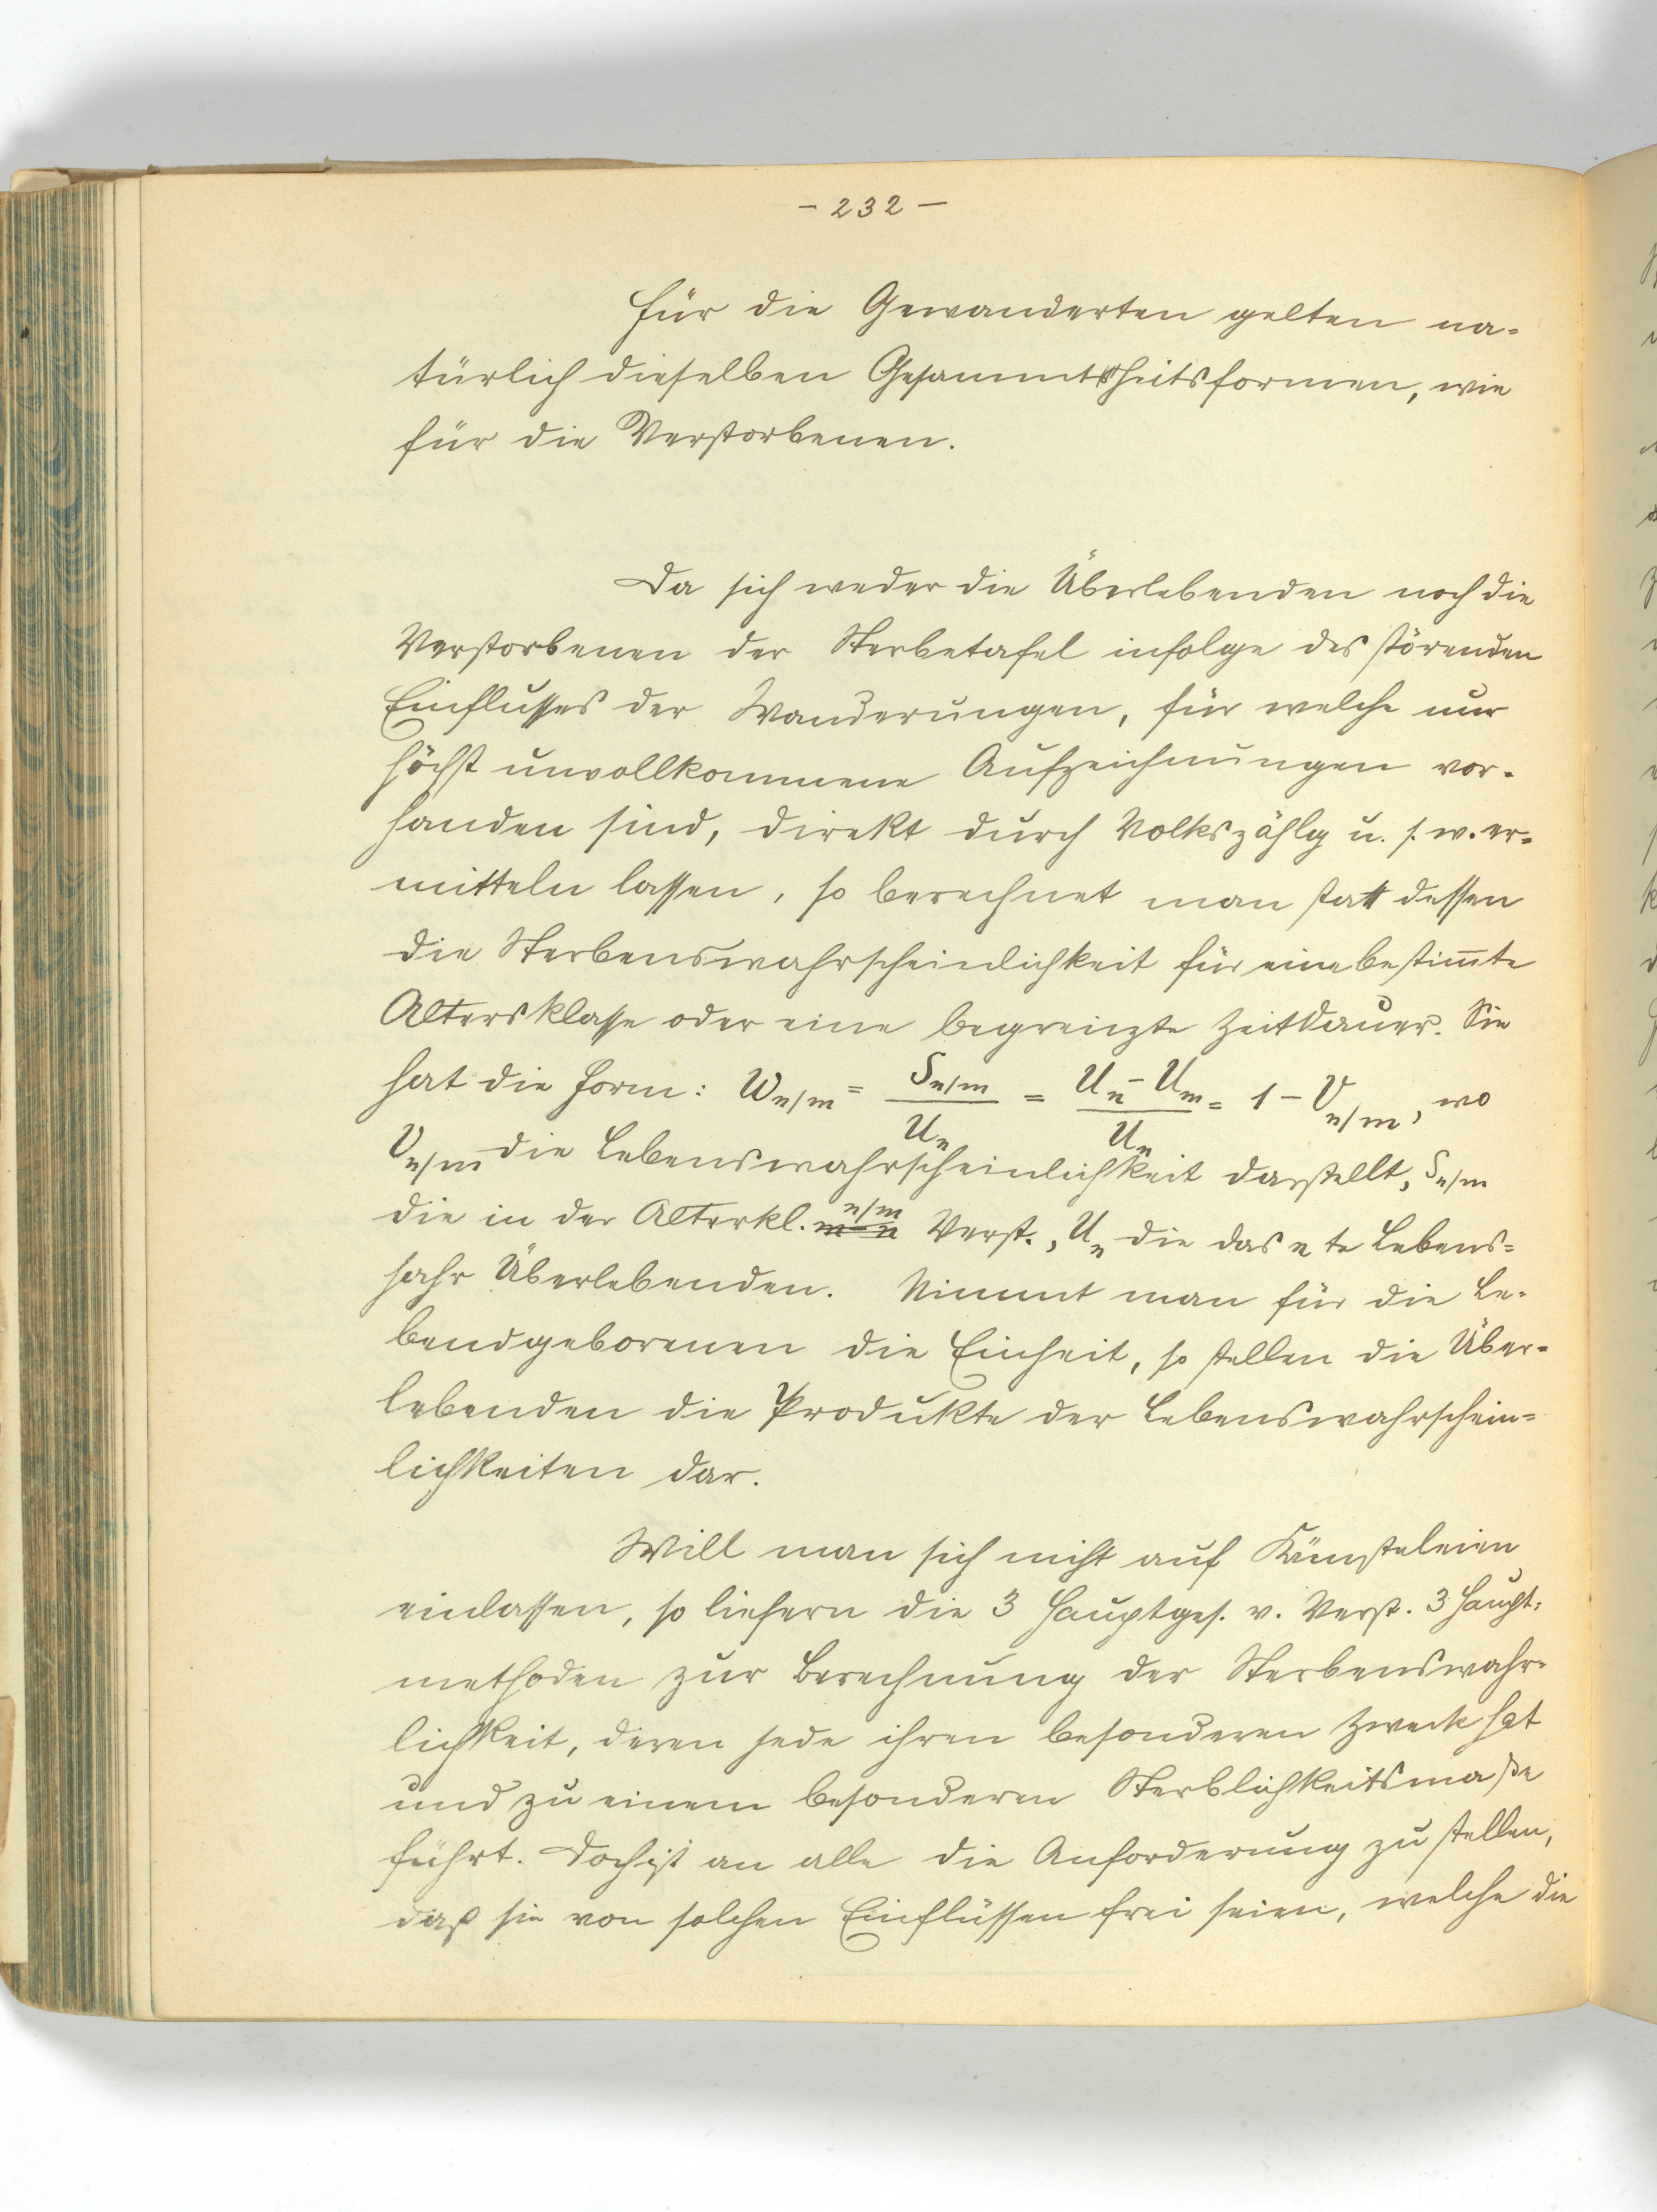 - 232 -
Für die Gewanderten gelten na-
türlich dieselben Gesammtheitsformen, wie
für die Verstorbenen.
Da sich weder die Überlebenden noch die
Verstorbenen der Sterbetafel infolge des störenden
Einflusses der Wanderungen, für welche nur
höchst unvollkommene Aufzeichnungen vor-
handen sind, direkt durch Volkszählg u. s. w. er-
mitteln lassen, so berechnet man statt dessen
die Sterbenswahrscheinlichkeit für eine bestim̅te
Altersklasse oder eine begrenzte Zeitdauer. Sie
hat die Form: W_{n/m} = S_{n/m} / U_n = (U_n - U_m) / U_n = 1 - V_{n/m}, wo
V_{n/m} die Lebenswahrscheinlichkeit darstellt, S_{n/m}
die in der Alterkl. n/m Verst., U_n die das n te Lebens-
jahr Überlebenden. Nimmt man für die Le-
bendgeborenen die Einheit, so stellen die Über-
lebenden die Produkte der Lebenswahrschein-
lichkeiten dar.
Will man sich nicht auf Künsteleien
einlassen, so liefern die 3 Hauptges. v. Verst. 3 Haupt-
methoden zur Berechnung der Sterbenswahr-
lichkeit, deren jede ihren besonderen Zweck hat
und zu einem besonderen Sterblichkeitsmaße
führt. Doch ist an alle die Anforderung zu stellen,
daß sie von solchen Einflüssen frei seien, welche die